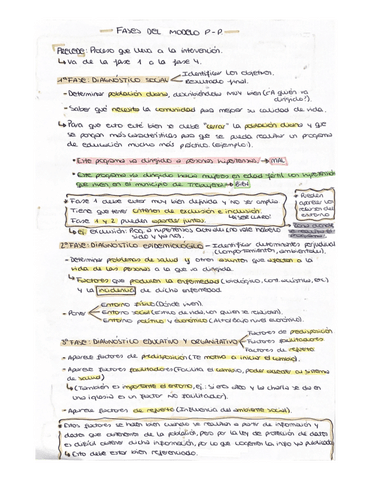 FASES DEL MODELO P-P
PRECEDE: Proceso que lleva a la intervención.
↳ Va de la fase 1 a la fase 4.
1ª FASE: DIAGNÓSTICO SOCIAL
Identificar los objetivos.
Resultado final.
- Determinar población diana, describiéndola muy bien (¿A quién va dirigido?)
- Saber qué necesita la comunidad para mejorar su calidad de vida.
↳ Para que esto esté bien se debe "cerrar" la población diana y que se pongan más características para que se pueda realizar un programa de educación mucho más práctico (ejemplo:).
• Este programa va dirigido a personas hipertensas. → MAL
• Este programa va dirigido hacia mujeres en edad fértil con hipertensión que viven en el municipio de → BIEN
• Fase 1 debe estar muy bien definida y no ser amplia
Tiene que tener criterios de exclusión e inclusión.
Fase 1 y 2 pueden hacerse juntas.
↳ ej: Exclusión:
2ª FASE: DIAGNÓSTICO EPIDEMIOLÓGICO - Identificar determinantes
(comportamientos, ambientales).
- Determinar problemas de salud y otros asuntos que afectan a la vida de las personas a la que va dirigida.
↳ Factores que producen la enfermedad
y la incidencia de dicha enfermedad.
- Parte
Entorno físico (Dónde viven).
Entorno social (Ritmo de vida, con quién se relacionan).
Entorno político y económico
3ª FASE: DIAGNÓSTICO EDUCATIVO Y ORGANIZATIVO
Factores de predisposición
Factores facilitadores
Factores de refuerzo
- Aparece factores de predisposición (Te motiva a iniciar el cambio).
- Aparece factores facilitadores (Facilita el cambio, poder acceder al sistema de salud)
↳ (También es importante el entorno, ej.: Si eres ateo y la charla se da en una iglesia es un factor no facilitador).
- Aparece factores de refuerzo (Influencia del ambiente social).
• Estos factores se hacen bien cuando se realizan a partir de información y datos que obtenemos de la población, pero por la ley de protección de datos es difícil obtener dicha información, por lo que cogemos la info ya publicada
↳ Esto debe estar bien referenciado.